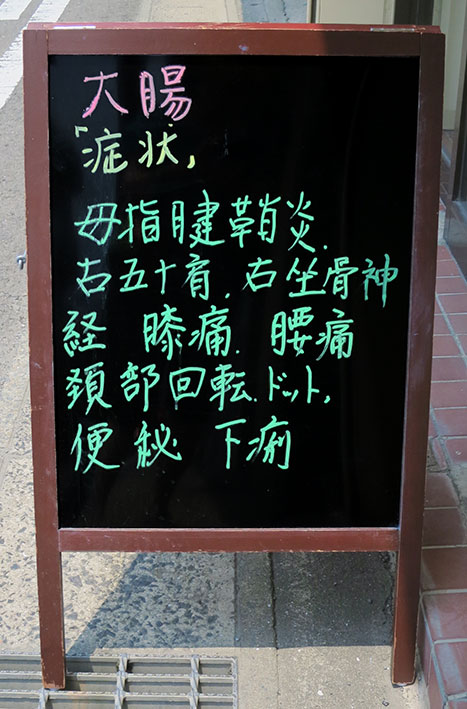 大腸
「症状」
母指腱鞘炎.
右五十肩.右坐骨神
経 膝痛.腰痛
頚部回転.ドット,
便秘 下痢